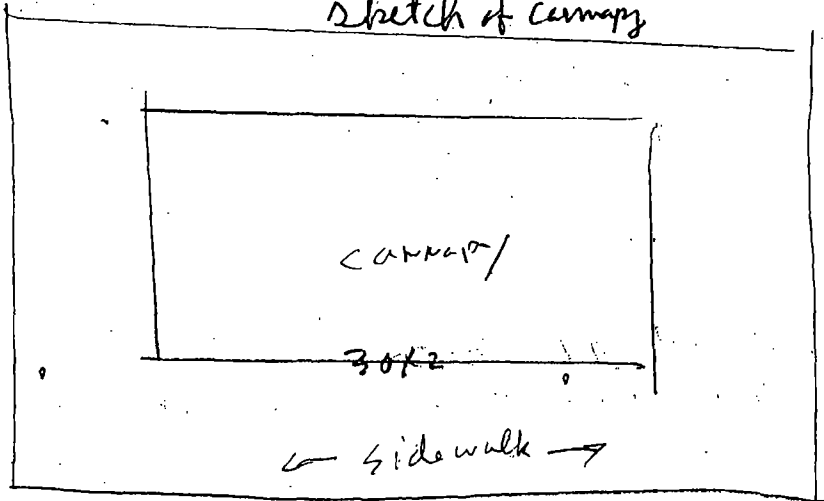 Sketch of Cannapy
Cannapy
30x2
← sidewalk →